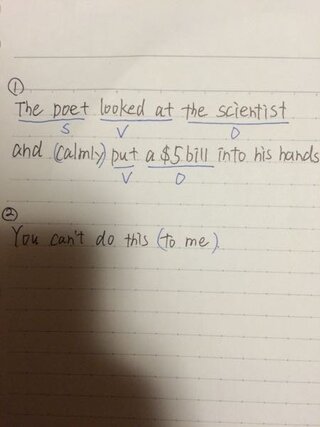 ①
The poet looked at the scientist
S V O
and (calmly) put a $5 bill into his hands
V O
②
You can't do this (to me)